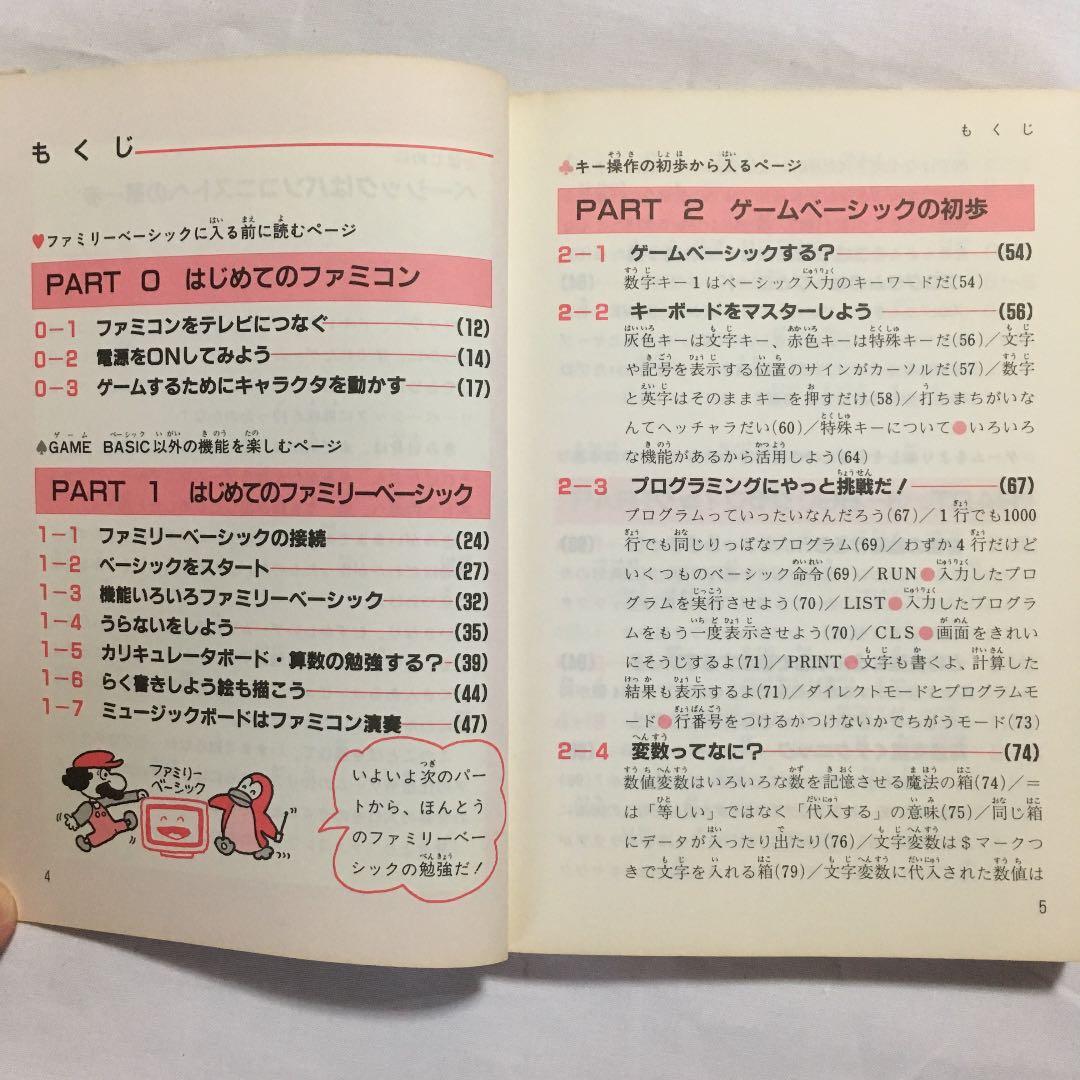 もくじ
♥ファミリーベーシックに入る前に読むページ
PART 0 はじめてのファミコン
0-1 ファミコンをテレビにつなぐ (12)
0-2 電源をONしてみよう (14)
0-3 ゲームするためにキャラクタを動かす (17)
♠GAME BASIC以外の機能を楽しむページ
PART 1 はじめてのファミリーベーシック
1-1 ファミリーベーシックの接続 (24)
1-2 ベーシックをスタート (27)
1-3 機能いろいろファミリーベーシック (32)
1-4 うらないをしよう (35)
1-5 カリキュレータボード・算数の勉強する? (39)
1-6 らく書きしよう絵も描こう (44)
1-7 ミュージックボードはファミコン演奏 (47)
ファミリー
ベーシック
いよいよ次のパー
トから、ほんとう
のファミリーベー
シックの勉強だ!
4
もくじ
♣キー操作の初歩から入るページ
PART 2 ゲームベーシックの初歩
2-1 ゲームベーシックする? (54)
数字キー1はベーシック入力のキーワードだ(54)
2-2 キーボードをマスターしよう (56)
灰色キーは文字キー、赤色キーは特殊キーだ(56)/文字
や記号を表示する位置のサインがカーソルだ(57)/数字
と英字はそのままキーを押すだけ(58)/打ちまちがいな
んてヘッチャラだい(60)/特殊キーについて●いろいろ
な機能があるから活用しよう(64)
2-3 プログラミングにやっと挑戦だ! (67)
プログラムっていったいなんだろう(67)/1行でも1000
行でも同じりっぱなプログラム(69)/わずか4行だけど
いくつものベーシック命令(69)/RUN●入力したプロ
グラムを実行させよう(70)/LIST●入力したプログラ
ムをもう一度表示させよう(70)/CLS●画面をきれい
にそうじするよ(71)/PRINT●文字も書くよ、計算した
結果も表示するよ(71)/ダイレクトモードとプログラムモ
ード●行番号をつけるかつけないかでちがうモード(73)
2-4 変数ってなに? (74)
数値変数はいろいろな数を記憶させる魔法の箱(74)/=
は「等しい」ではなく「代入する」の意味(75)/同じ箱
にデータが入ったり出たり(76)/文字変数は$マークつ
きで文字を入れる箱(79)/文字変数に代入された数値は
5